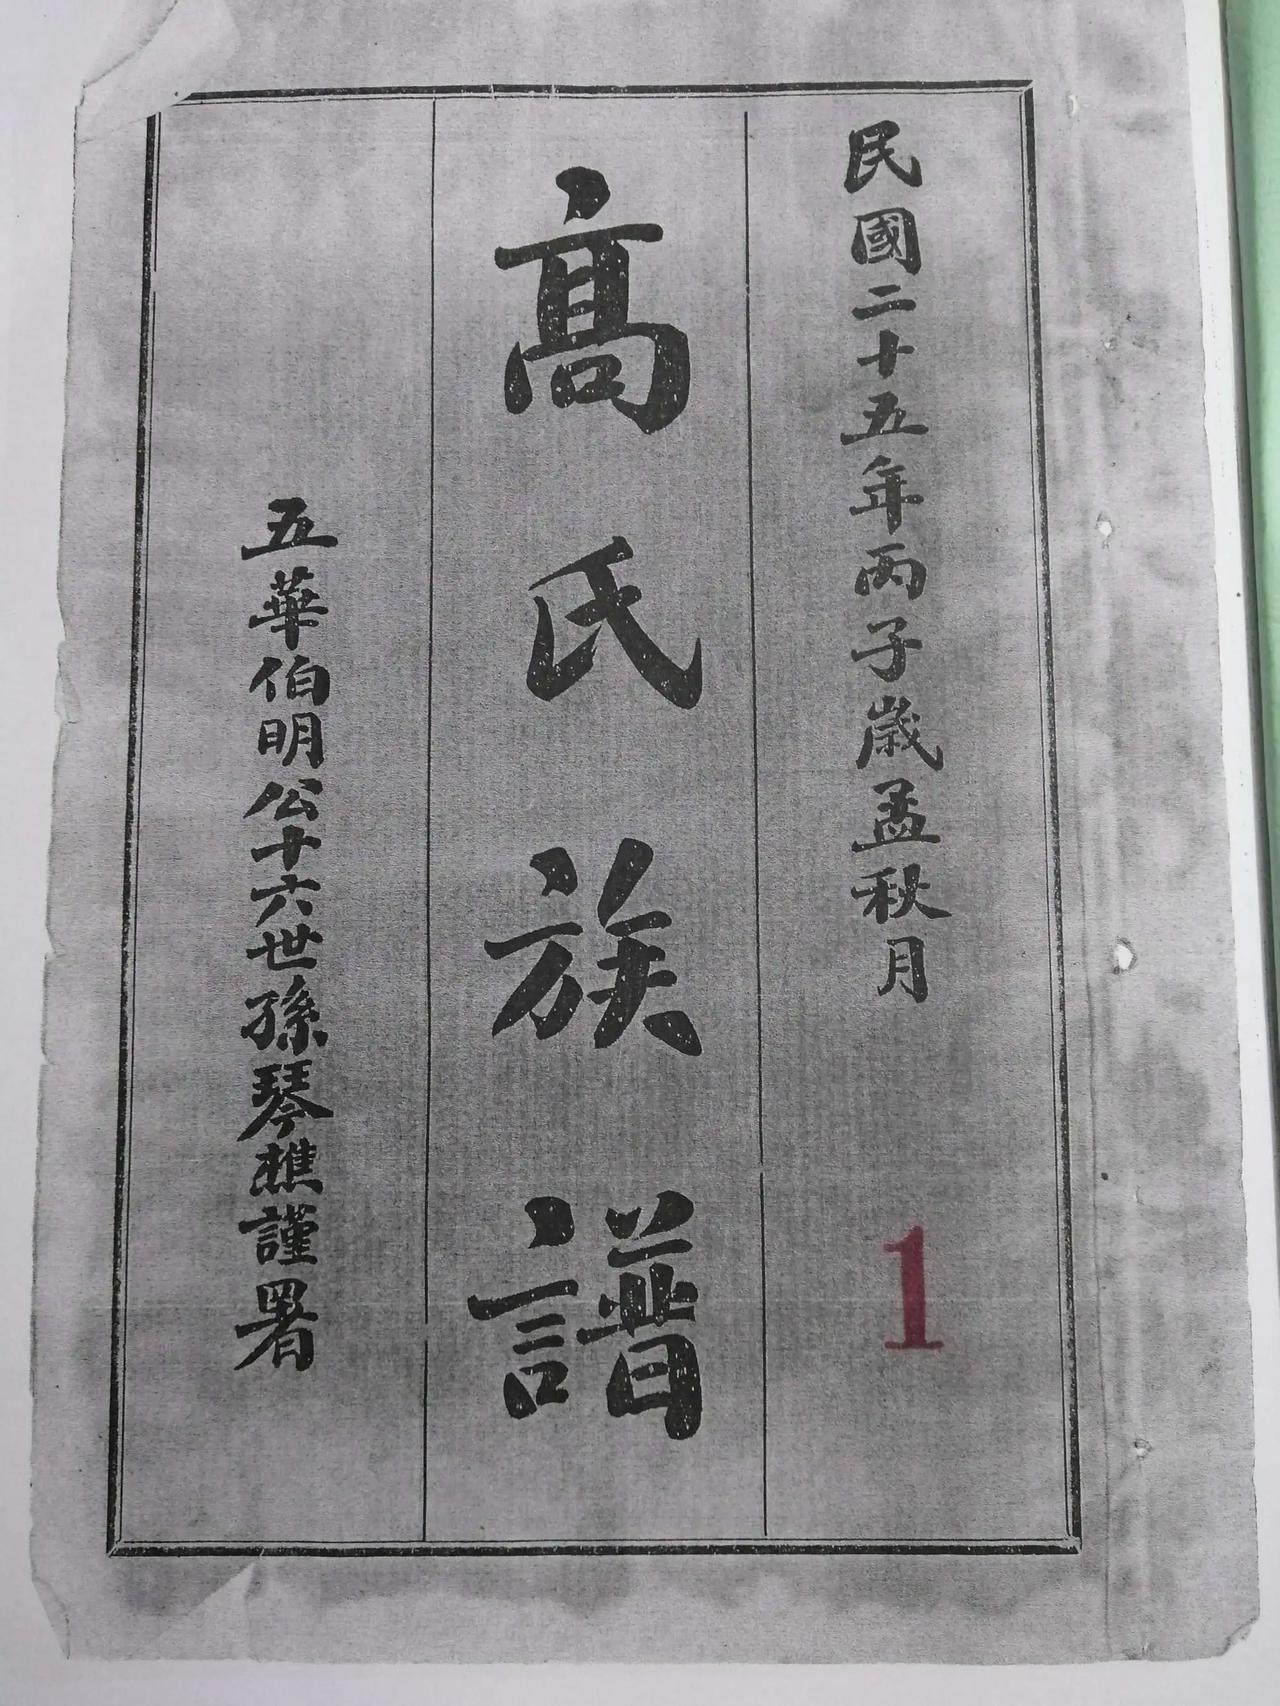 民國二十五年丙子歲孟秋月
1
髙氏族譜
五華伯明公十六世孫琴樵謹署